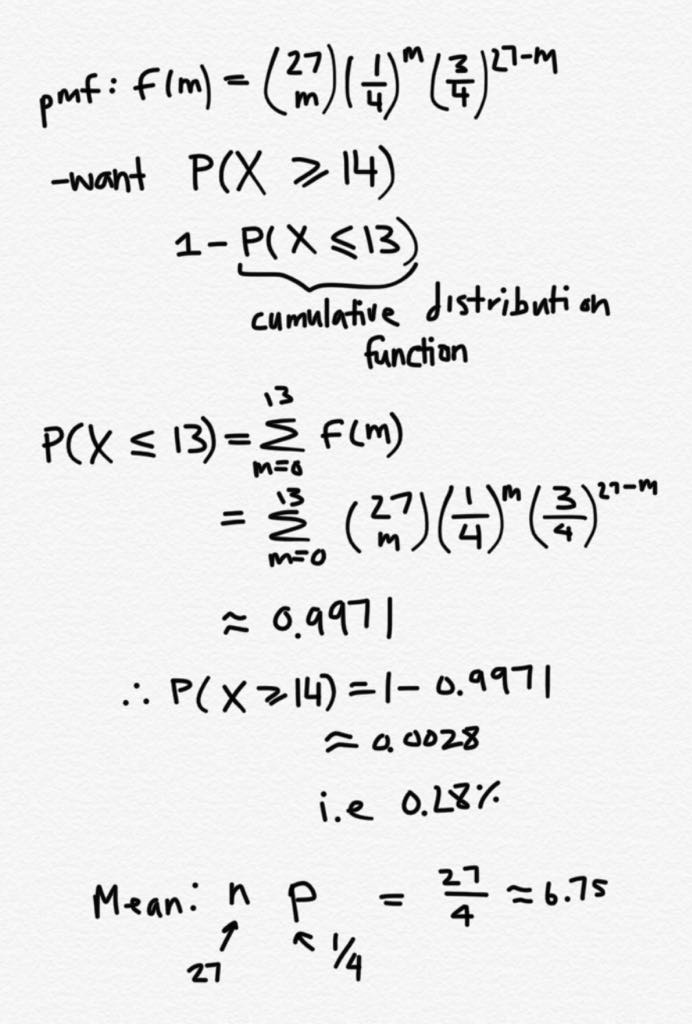 pmf: f(m) = (27 m)(1/4)^m (3/4)^27-m
-want P(X ⩾ 14)
1 - P(X ⩽ 13)
cumulative distribution
function
P(X ≤ 13) = 13 Σ m=0 f(m)
= 13 Σ m=0 (27 m)(1/4)^m (3/4)^27-m
≈ 0.9971
∴ P(X ⩾ 14) = 1 - 0.9971
≈ 0.0028
i.e 0.28%
Mean: n p = 27/4 ≈ 6.75
27 1/4